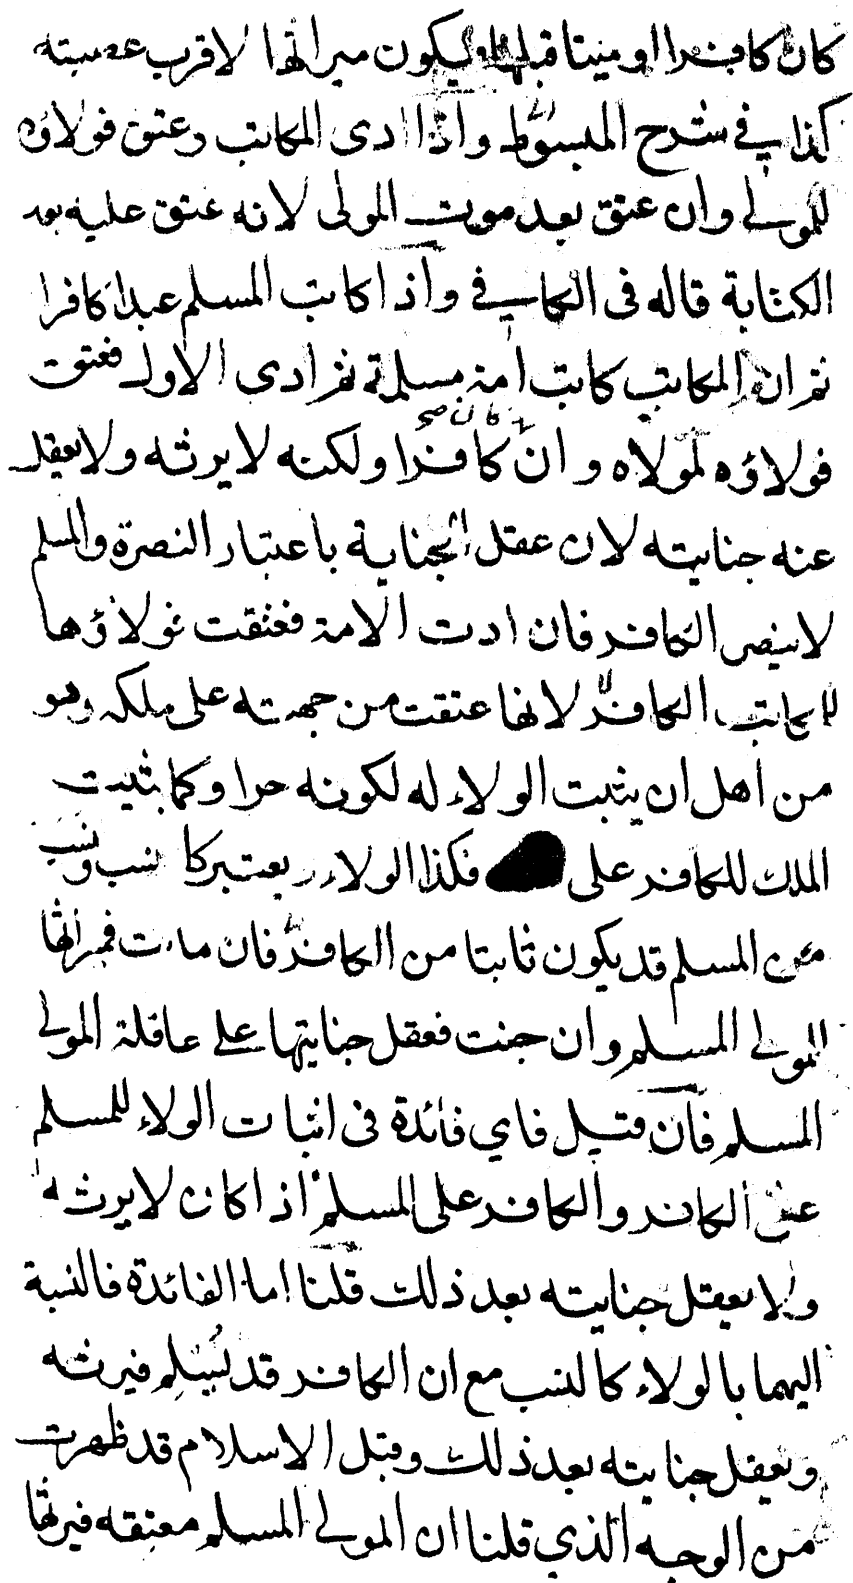 كان كافرا او ميتا قبلها فيكون ميراثها لاقرب عصبته
كذا في شرح المبسوط واذا ادى المكاتب وعتق فولاؤه
للمولى وان عتق بعد موت المولى لانه عتق عليه بعد
الكتابة قاله فى الكافي واذا كاتب المسلم عبدا كافرا
ثم ان المكاتب كاتب امة مسلمة ثم ادى الاول فعتق
كان صح
فولاؤه لمولاه وان كافرا ولكنه لا يرثه ولا يعقل
عنه جنايته لان عقل الجناية باعتبار النصرة والمسلم
لا ينصر الكافر فان ادت الامة فعتقت فولاؤها
للمكاتب الكافر لانها عتقت من جهته على ملكه وهو
من اهل ان يثبت الولاء له لكونه حرا وكما يثبت
الملك للكافر على فكذا الولاء يعتبر كا لنسب ونسب
من المسلم قد يكون ثابتا من الكافر فان ماتت فميراثها
للمولى المسلم وان جنت فعقل جنايتها على عاقلة المولى
المسلم فان قيل فاي فائدة فى اثبات الولاء للمسلم
على الكافر والكافر على المسلم اذا كان لا يرثه
ولا يعقل جنايته بعد ذلك قلنا اما الفائدة فالنسبة
اليهما بالولاء كالنسب مع ان الكافر قد يسلم فيرثه
ويعقل جنايته بعد ذلك وقبل الاسلام قد ظهرت
من الوجه الذي قلنا ان المولى المسلم معتقه فيرثها